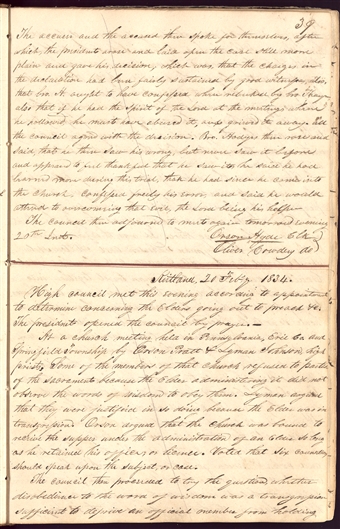 39
The accuser and the accused then spoke for themselves, after
which, the president arose and laid open the case still more
plain and gave his decision, which was, that the charges in
the declaration had been fairly sustained by good witnesses, also,
that bro. H. ought to have confessed when rebuked by bro. Thayer
also that if he had the Spirit of the Lord at the meetings where
he hollowed, he must have abused it, and grieved it away. All
the council agreed with the decision. Bro. Hodges then rose and
said, that he then saw his wrong, but never saw it before
and appeared to feel thankful that he saw it. he said he had
learned more during this trial, than he had since he came into
the church. Confessed freely his error, and said he would
attend to overcoming that evil, the Lord being his helper
The council then adjourned to meet again tomorrow evening
20th Inst.
Orson Hyde Clk
Oliver Cowdery do
Kirtland, 20 Feby 1834.
High council met this evening according to appointment
to determine concerning the Elders going out to preach &c.
The presidents opened the council by prayer.
At a church meeting held in Pennsylvania, Erie Co. and
Springfield Township by Orson Pratt & Lyman Johnson, high
priests, Some of the members of that church refused to partake
of the sacrament because the Elder administering it did not
observe the words of wisdom to obey them. Lyman argued
that they were justified in so doing because the Elder was in
transgression. Orson argued that the church was bound to
receive the supper under the administration of an Elder so long
as he retained his office or licence. Voted that six councellors
should speak upon the subject or case.
The council then proceeded to try the question whether
disobedience to the word of wisdom was a transgression
sufficient to deprive an official member from holding